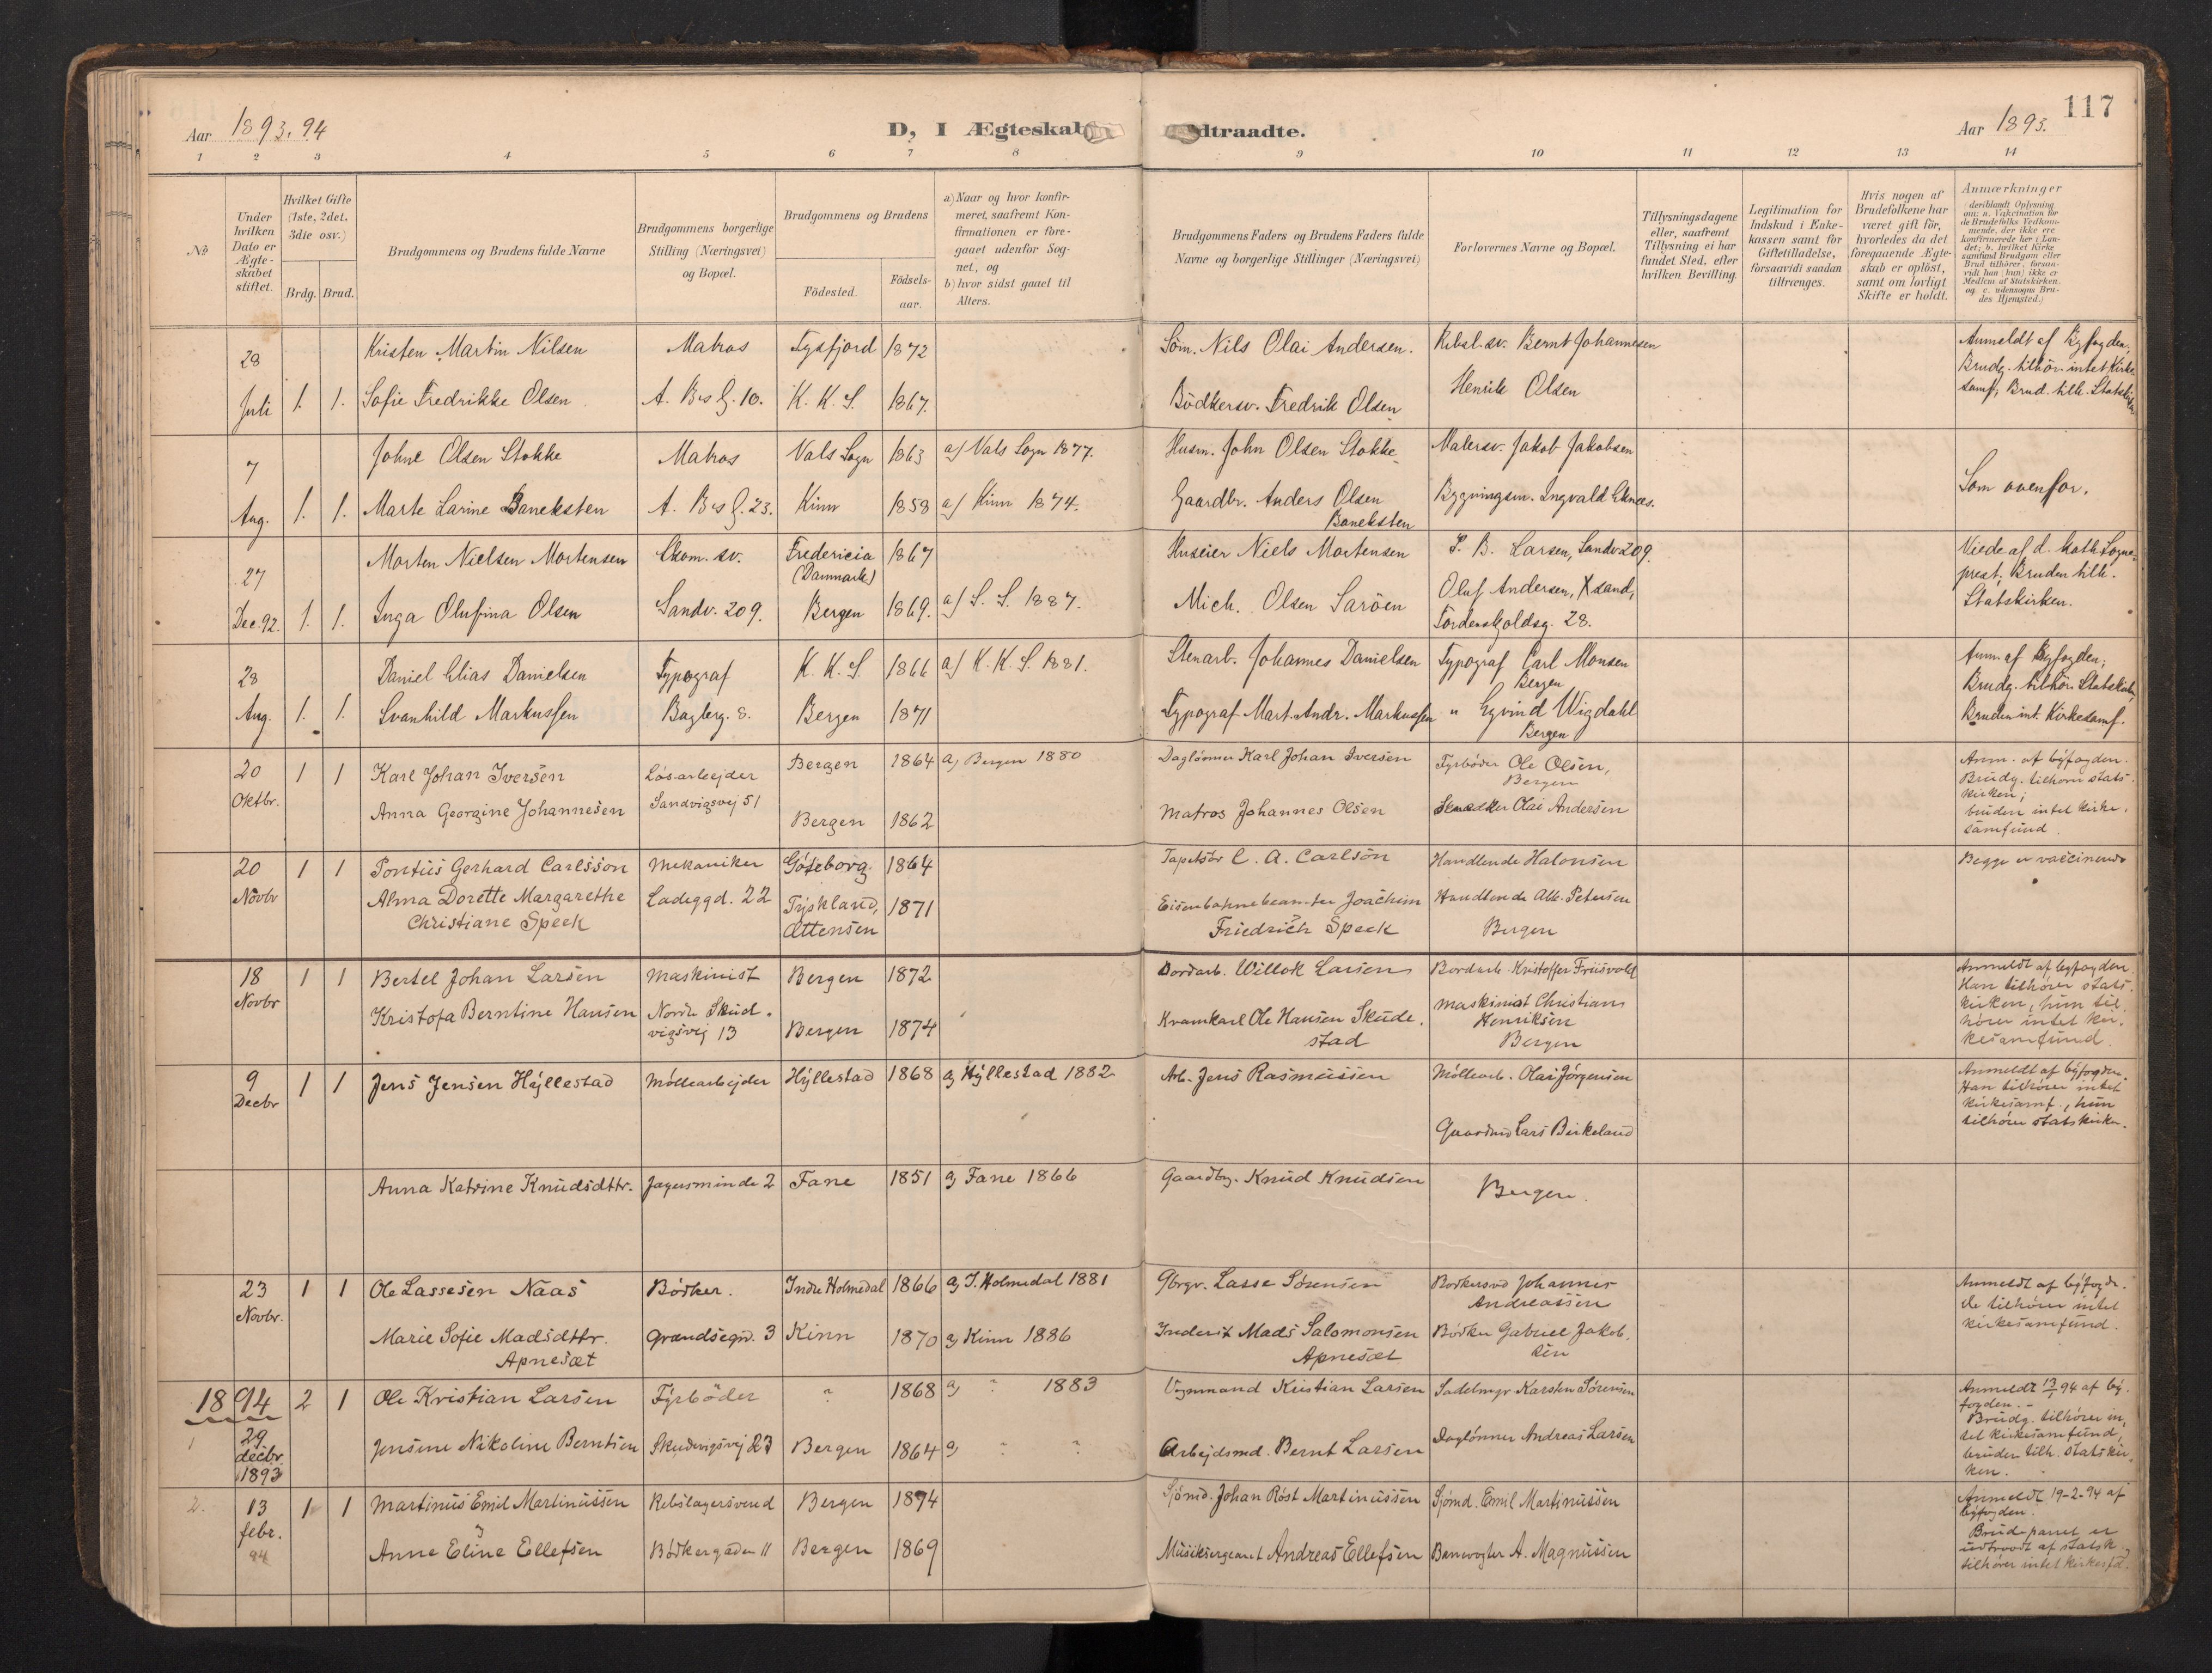 Aar 1893.94
D, I Ægteskab
Indtraadte.
Aar 1893.
117
1 2 3 4 5 6 7 8 9 10 11 12 13 14
No
Under hvilken Dato er Ægteskabet stiftet.
Hvilket Gifte (1ste, 2det, 3die osv.)
Brdg. Brud.
Brudgommens og Brudens fulde Navne
Brudgommens borgerlige Stilling (Næringsvei) og Bopæl.
Brudgommens og Brudens
Födested.
Födsels-aar.
a) Naar og hvor konfirmeret, saafremt Konfirmationen er foregaaet udenfor Sognet, og
b) hvor sidst gaaet til Alters.
Brudgommens Faders og Brudens Faders fulde Navne og borgerlige Stillinger (Næringsvei)
Forlovernes Navne og Bopæl.
Tillysningsdagene eller, saafremt Tillysning ei har fundet Sted, efter hvilken Bevilling.
Legitimation for Indskud i Enkekassen samt for Giftetilladelse, forsaavidt saadan tiltrænges.
Hvis nogen af Brudefolkene har været gift för, hvorledes da det foregaaende Ægteskab er oplöst, samt om lovligt Skifte er holdt.
Anmærkninger (deriblandt Oplysning om: a. Vakcination for de Brudefolks Vedkommende, der ikke ere konfirmerede her i Landet; b. hvilket Kirkesamfund Brudgom eller Brud tilhörer, forsaavidt han (hun) ikke er Medlem af Statskirken, og c. udensogns Brudes Hjemsted.)
28 Juli 1. 1.
Kristen Martin Nilsen Matros Tysfjord 1872 Söm. Nils Olai Andersen. Rebsl.sv. Bernt Johannesen
Sofie Fredrikke Olsen A. Bes G. 10. K. K. S. 1867. Bödkersv. Fredrik Olsen Henrik Olsen
Anmeldt af Byfogden.
Brudg. tilhör. intet Kirke
samf; Brud. tilh. Statskirken
7 Aug. 1. 1.
Johne Olsen Stokke Matros Vals Sogn 1863 a) Vals Sogn 1877. Husm. John Olsen Stokke Malersv. Jakob Jakobsen
Marte Larine Baneksten A. Bes G. 23. Kinn 1858 a) Kinn 1874. Gaardbr. Anders Olsen Baneksten Bygningsm. Ingvald Eknæs.
Som ovenfor.
27 Dec. 92. 1. 1.
Morten Nielsen Mortensen Skom. sv. Fredericia (Danmark) 1867 Huseier Niels Mortensen S. B. Larsen, Sandv 209.
Inga Olufina Olsen Sandv. 209. Bergen 1869. a) S. S. 1887. Mich. Olsen Saröen Oluf Andersen, Xsand,
Tordenskoldsg. 28.
Viede af d. kath. Sogne-
prest; Bruden tilh.
Statskirken.
23 Aug. 1. 1.
Daniel Elias Danielsen Typograf K. K. S 1866 a) K. K. S. 1881. Stenarb. Johannes Danielsen Typograf Carl Monsen
Bergen
Svanhild Markussen Bagerg. 8. Bergen 1871 Typograf Mart. Andr. Markussen " Eyvind Wigdahl
Bergen
Anm. af Byfogden;
Brudg. tilhör. Statskirken,
Bruden int. Kirkesamf.
20 Oktbr. 1 1
Karl Johan Iversen Løsarbejder Bergen 1864 a) Bergen 1880 Daglønner Karl Johan Iversen Fyrbøder Ole Olsen,
Bergen
Anna Georgine Johannesen Sandvigsvej 51 Bergen 1862 Matros Johannes Olsen Olai Andersen
Anm. af byfogden.
Brudg. tilhører stats
kirken;
bruden intet kirke.
samfund.
20 Novbr 1 1
Pontus Gerhard Carlsson Mekaniker Göteborg 1864 Tapetsör C. A. Carlson Handlende Halvorsen
Alma Dorette Margarethe Ladeggd. 22 Tyskland, 1871 Eisenbahnebeamter Joachim Handlende Alb. Petersen
Christiane Speck Ottensen Friedrich Speck Bergen
Begge er vaccinerede
18 Novbr 1 1
Bertel Johan Larsen Maskinist Bergen 1872 Bordarb. Willok Larsen Bordarb. Kristoffer Friisvold
Kristofa Berntine Hansen Nordre Skud. Bergen 1874 Kramkarl Ole Hansen Skude. Maskinist Christian
vigsvej 13 stad Henriksen
Bergen
Anmeldt af byfogden.
Han tilhører stats.
kirken, hun til
hører intet kir.
kesamfund.
9 Decbr 1 1
Jens Jensen Hyllestad Møllearbejder Hyllestad 1868 a) Hyllestad 1882 Arb. Jens Rasmussen Møllearb. Olai Jørgensen
Gaardmd Lars Birkeland
Anmeldt af byfogden.
Han tilhører intet
kirkesamf., hun
tilhører statskirken.
Anna Katrine Knudsdttr. Jægersminde 2 Fane 1851 a) Fane 1866 Gaardbr. Knud Knudsen Bergen.
23 Novbr. 1 1
Ole Lassesen Naas Bødker. Indre Holmedal 1866 a) I. Holmedal 1881 Gbrgr. Lasse Sørensen Bødkersvd Johannes
Andreassen
Marie Sofie Madsdttr. Grændsegd. 3 Kinn 1870 a) Kinn 1886 Inderst Mads Salomonsen Bødker Gabriel Jakob.
Apnesæt Apnesæt sen
Anmeldt af byfogd.
De tilhører intet
kirkesamfund.
1894
1 29 decbr. 1893 2 1
Ole Kristian Larsen Fyrbøder " 1868 a) " 1883 Vognmand Kristian Larsen Sadelmgr Karsten Sørensen
Jensine Nikoline Berntsen Skudevigsvej 23 Bergen 1864 a) " " Arbejdsmd. Bernt Larsen Daglønner Andreas Larsen
Anmeldt 13/1 94 af by.
fogden. -
Brudg. tilhører in,
tet kirkesamfund,
bruden tilh. statskir,
ken.
2. 13 febr. 94 1 1
Martinus Emil Martinussen Rebslagersvend Bergen 1874 Sjømd. Johan Röst Martinussen Sjømd. Emil Martinussen
Anne Eline Ellefsen Bødkergaden 11 Bergen 1869 Musiksergeant Andreas Ellefsen Banevogter A. Magnussen
Anmeldt 19-2-94 af
byfogden.
Brudeparret er
udtraadt af statsk.,
tilhører intet kirkesfd.